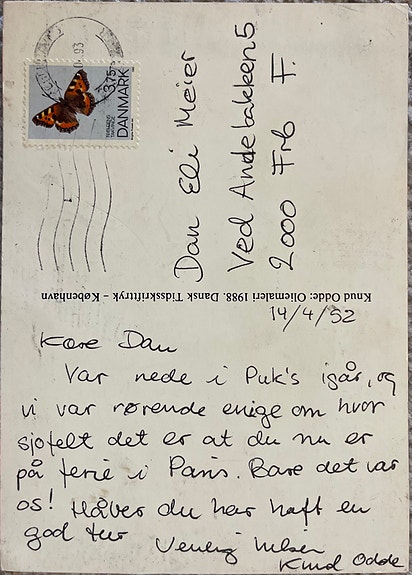 .93
3.75
DANMARK
Dan Eli Meier
Ved Andebakken 5
2000 Frb F.
Knud Odde: Oliemaleri 1988. Dansk Tidsskrifttryk - København
14/4/92
Kære Dan
Var nede i Puk's igår, og
vi var rørende enige om hvor
sjofelt det er at du nu er
på ferie i Paris. Bare det var
os! Håber du har haft en
god tur
Venlig hilsen
Knud Odde